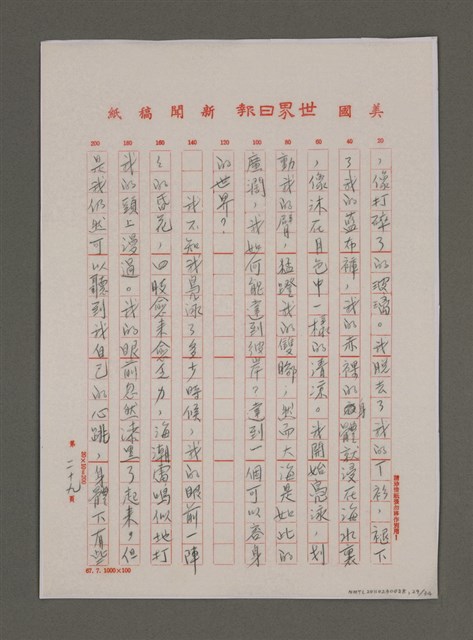 美國世界日報新聞稿紙
20 40 60 80 100 120 140 160 180 200
，像打碎了的玻璃。我脫去了我的下衫，褪下
了我的藍布褲，我的赤裸的身體就浸在海水裏
，像沐在月色中一樣的清涼。我開始游泳，划
動我的臂，猛蹬我的雙腳，然而大海是如此的
廣濶，我如何能達到彼岸？達到一個可以容身
的世界？
我不知我游泳了多少時候，我的眼前一陣
陣的昏花，四肢愈來愈乏力，海潮雷鳴似地打
我的頭上漫過。我的眼前忽然漆黑了起來。但
是我仍然可以聽到我自己的心跳，身體下有些
20×10=200
第二十九頁
67.7.1000×100